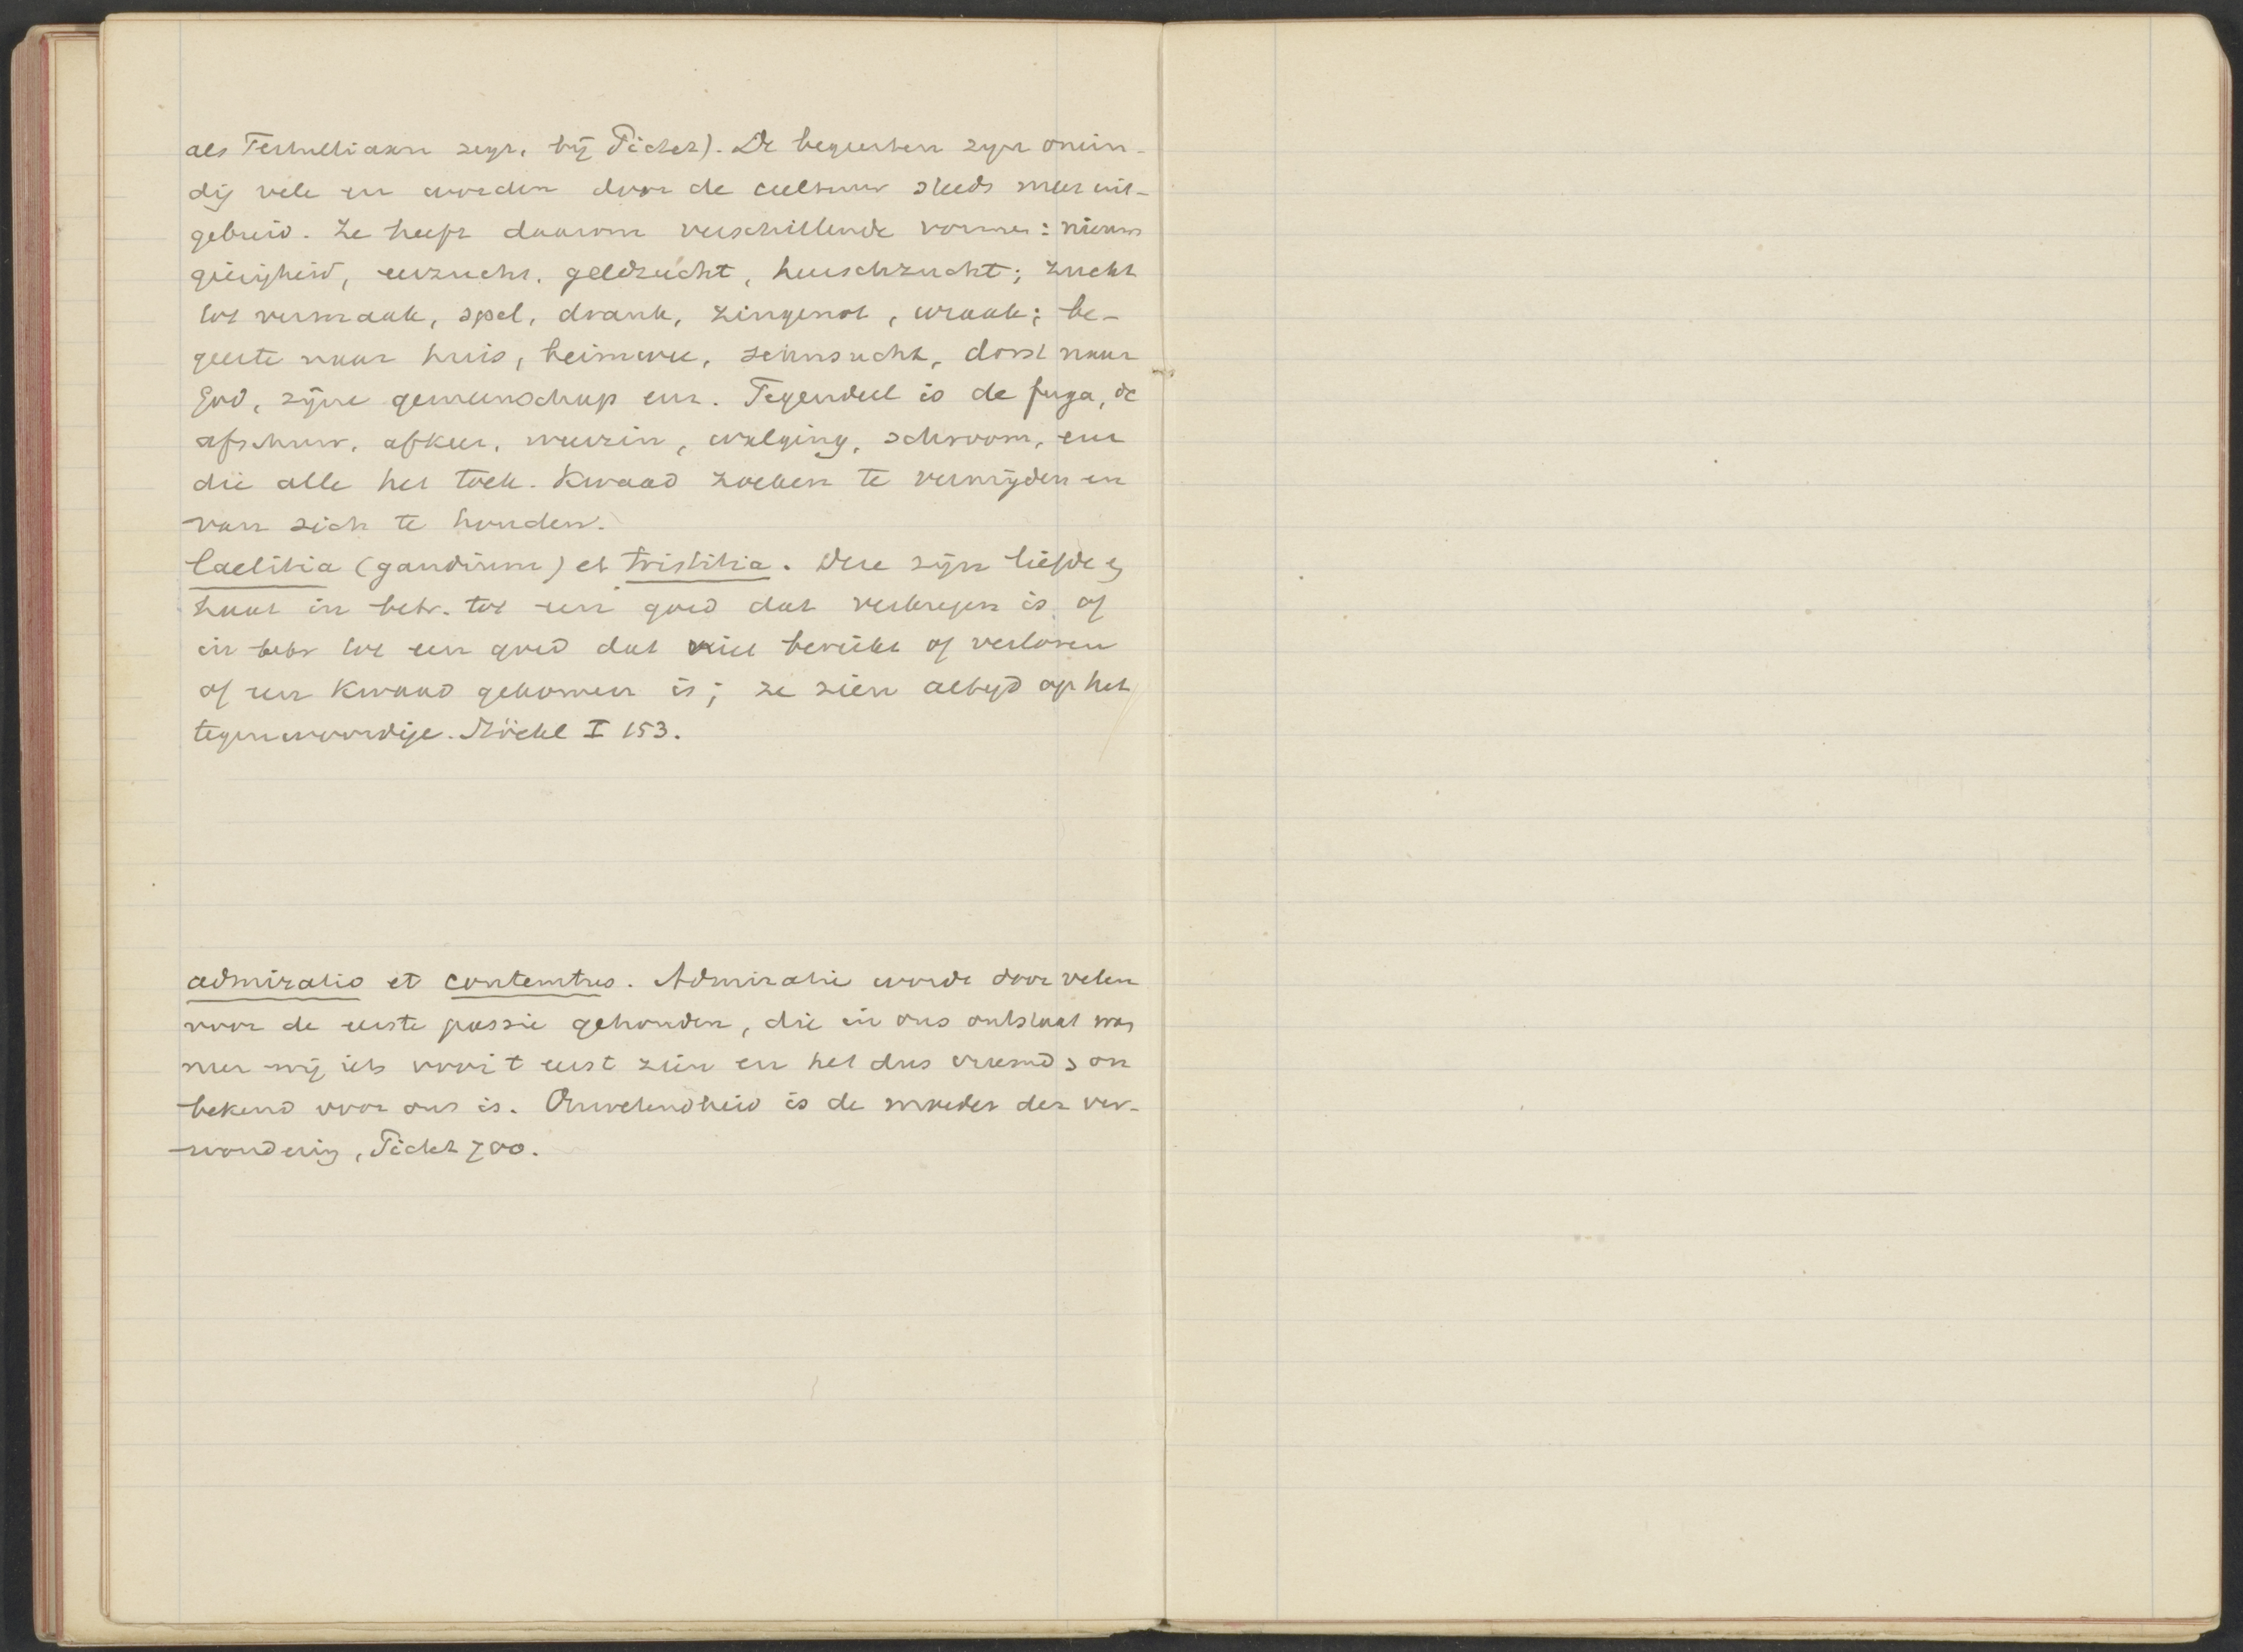 als Tertulliaan zegt, bij Pictet). De begeerten zijn onein-
dig vele en worden door de cultuur steeds meer uit-
gebreid. Ze heeft daarom verschillende vormen: nieuws
gierigheid, eerzucht, geldzucht, heerschzucht; zucht
tot vermaak, spel, drank, zingenot, wraak; be-
geerte naar huis, heimwee, sehnsucht, dorst naar
God, zijne gemeenschap enz. Tegendeel is de fuga, de
afschuw, afkeer, weerzin, walging, schroom, enz
die alle het toek. kwaad zoeken te vermijden en
van zich te houden.
laetitia (gaudium) et tristitia. Deze zijn liefde en
haat in betr. tot een goed dat verkregen is of
in betr tot een goed dat niet bereikt of verloren
of een kwaad gekomen is; ze zien altijd op het
tegenwoordige. Stöckl I 153.
admiratio et contemtus. Admiratie wordt door velen
voor de eerste passie gehouden, die in ons ontstaat wan
neer wij iets voor 't eerst zien en het dus vreemd, on
bekend voor ons is. Onwetendheid is de moeder der ver-
wondering, Pictet 700.